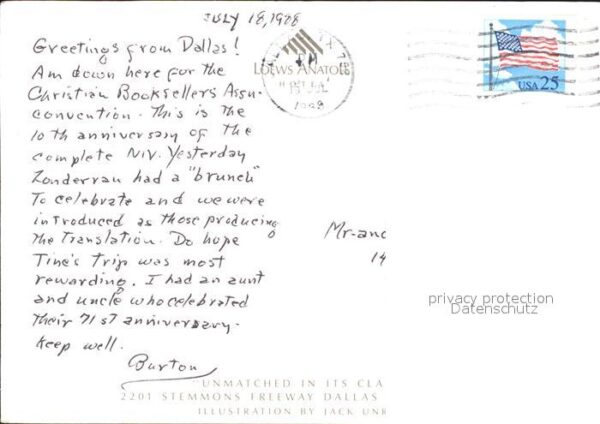 July 18, 1988
Greetings from Dallas!
Am down here for the
Christian Booksellers Assn.
convention. This is the
10th anniversary of the
complete NIV. Yesterday
Zondervan had a "brunch"
To celebrate and we were
introduced as those producing
the Translation. Do hope
Tine's Trip was most
rewarding. I had an aunt
and uncle who celebrated
Their 71st anniversary.
Keep well.
Burton
LOEWS ANATOLE
1988
USA 25
Mr. and
14
privacy protection
Datenschutz
UNMATCHED IN ITS CLA
2201 STEMMONS FREEWAY DALLAS
ILLUSTRATION BY JACK UNR